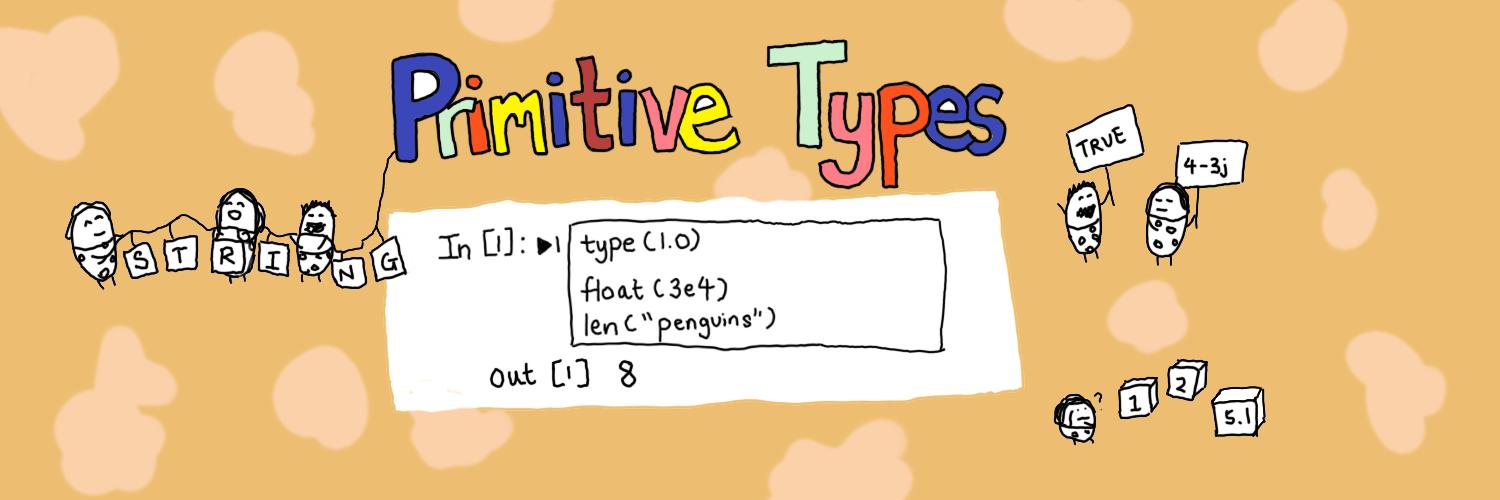 Primitive Types
STRING
In [1]: ▶1
type (1.0)
float (3e4)
len ("penguins")
out [1] 8
TRUE
4-3j
?
1
2
5.1